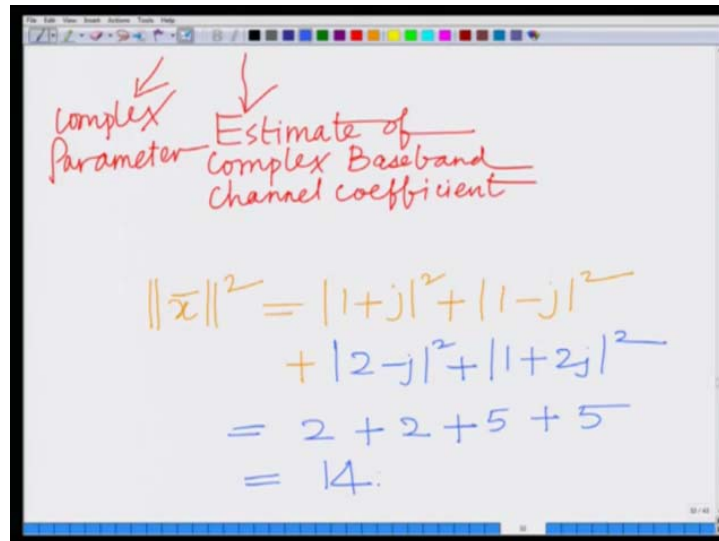 File Edit View Insert Actions Tools Help
complex
Parameter
Estimate of
complex Baseband
channel coefficient
‖x̄‖² = |1+j|² + |1-j|²
+ |2-j|² + |1+2j|²
= 2 + 2 + 5 + 5
= 14.